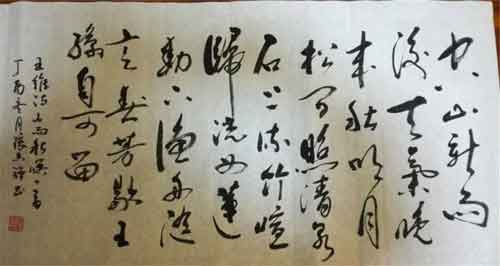 空山新雨
後天氣晚
来秋明月
松间照清泉
石上流竹喧
歸浣女蓮
動下漁舟随
意春芳歇王
孫自可留
王维诗山居秋暝一首
丁酉冬月張